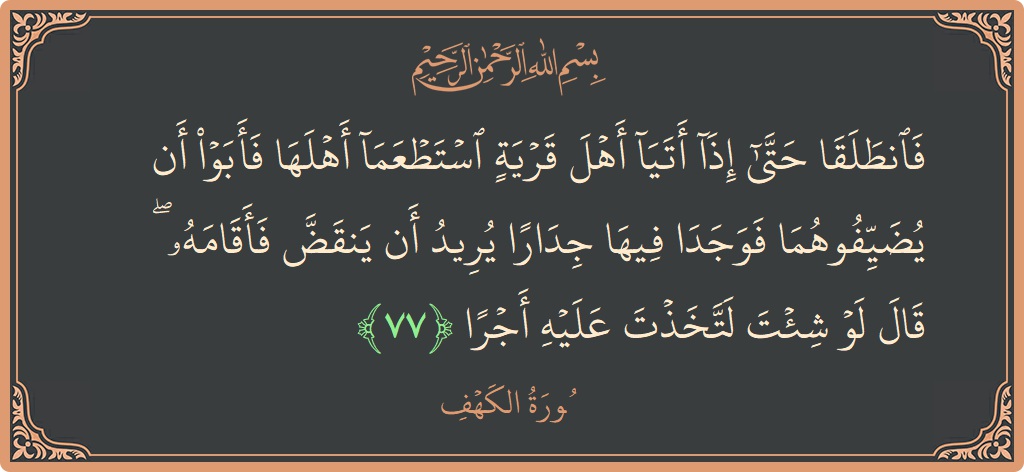 بِسْمِ اللهِ الرَّحْمٰنِ الرَّحِيْمِ
فَٱنطَلَقَا حَتَّىٰٓ إِذَآ أَتَيَآ أَهْلَ قَرْيَةٍ ٱسْتَطْعَمَآ أَهْلَهَا فَأَبَوْا۟ أَن
يُضَيِّفُوهُمَا فَوَجَدَا فِيهَا جِدَارًا يُرِيدُ أَن يَنقَضَّ فَأَقَامَهُۥ ۖ
قَالَ لَوْ شِئْتَ لَتَّخَذْتَ عَلَيْهِ أَجْرًا ﴿٧٧﴾
سُورَةُ الكَهْفِ